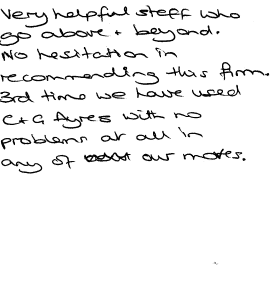 Very helpful staff who
go above + beyond.
No hesitation in
recommending this firm.
3rd time we have used
C+G Ayres with no
problems at all in
any of our moves.